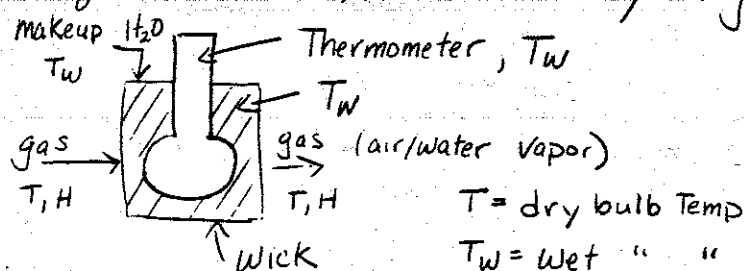 makeup H₂O
Thermometer, Tw
Tw
Tw
gas
gas (air/water vapor)
T, H
T, H
T = dry bulb Temp
Wick
Tw = Wet " "